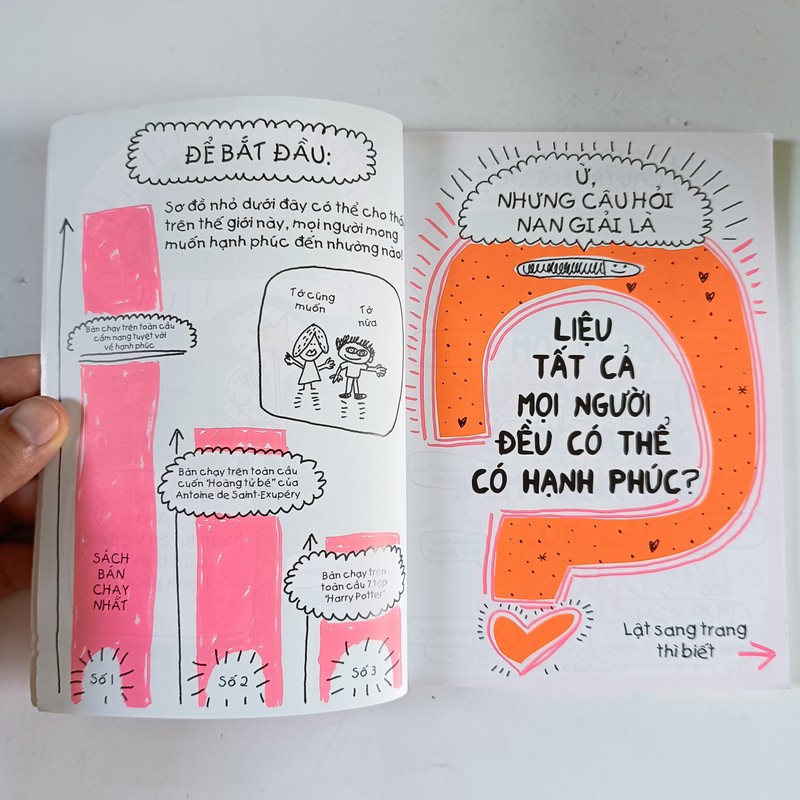 ĐỂ BẮT ĐẦU:
Sơ đồ nhỏ dưới đây có thể cho thấ
trên thế giới này, mọi người mong
muốn hạnh phúc đến nhường nào!
Tớ cũng
muốn
Tớ
nữa
Bán chạy trên toàn cầu
cẩm nang tuyệt vời
về hạnh phúc
Bán chạy trên toàn cầu
cuốn "Hoàng tử bé" của
Antoine de Saint-Exupéry
Bán chạy trên
toàn cầu 7 tập
"Harry Potter"
SÁCH
BÁN
CHẠY
NHẤT
Số 1
Số 2
Số 3
Ừ,
NHƯNG CÂU HỎI
NAN GIẢI LÀ
LIỆU
TẤT CẢ
MỌI NGƯỜI
ĐỀU CÓ THỂ
CÓ HẠNH PHÚC?
Lật sang trang
thì biết